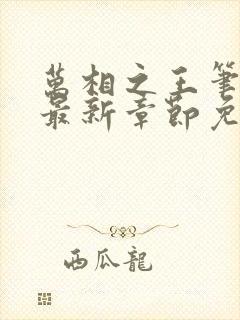 萬相之王筆
最新章節免
西瓜龍